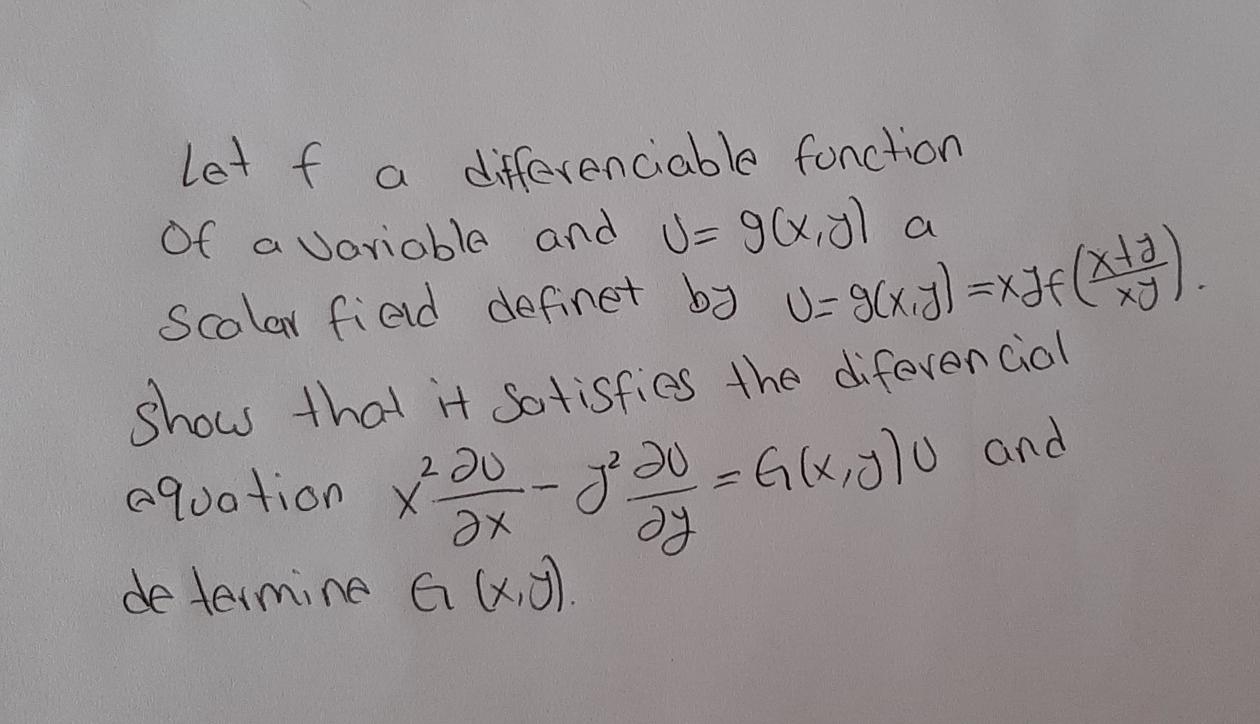 Let f a differenciable function
Of a variable and U= g(x,y) a
Scalar field definet by U= g(x,y) =xyf((x+y)/(xy)).
show that it satisfies the diferencial
equation x² ∂U/∂x - y² ∂U/∂y = G(x,y)U and
determine G (x,y).